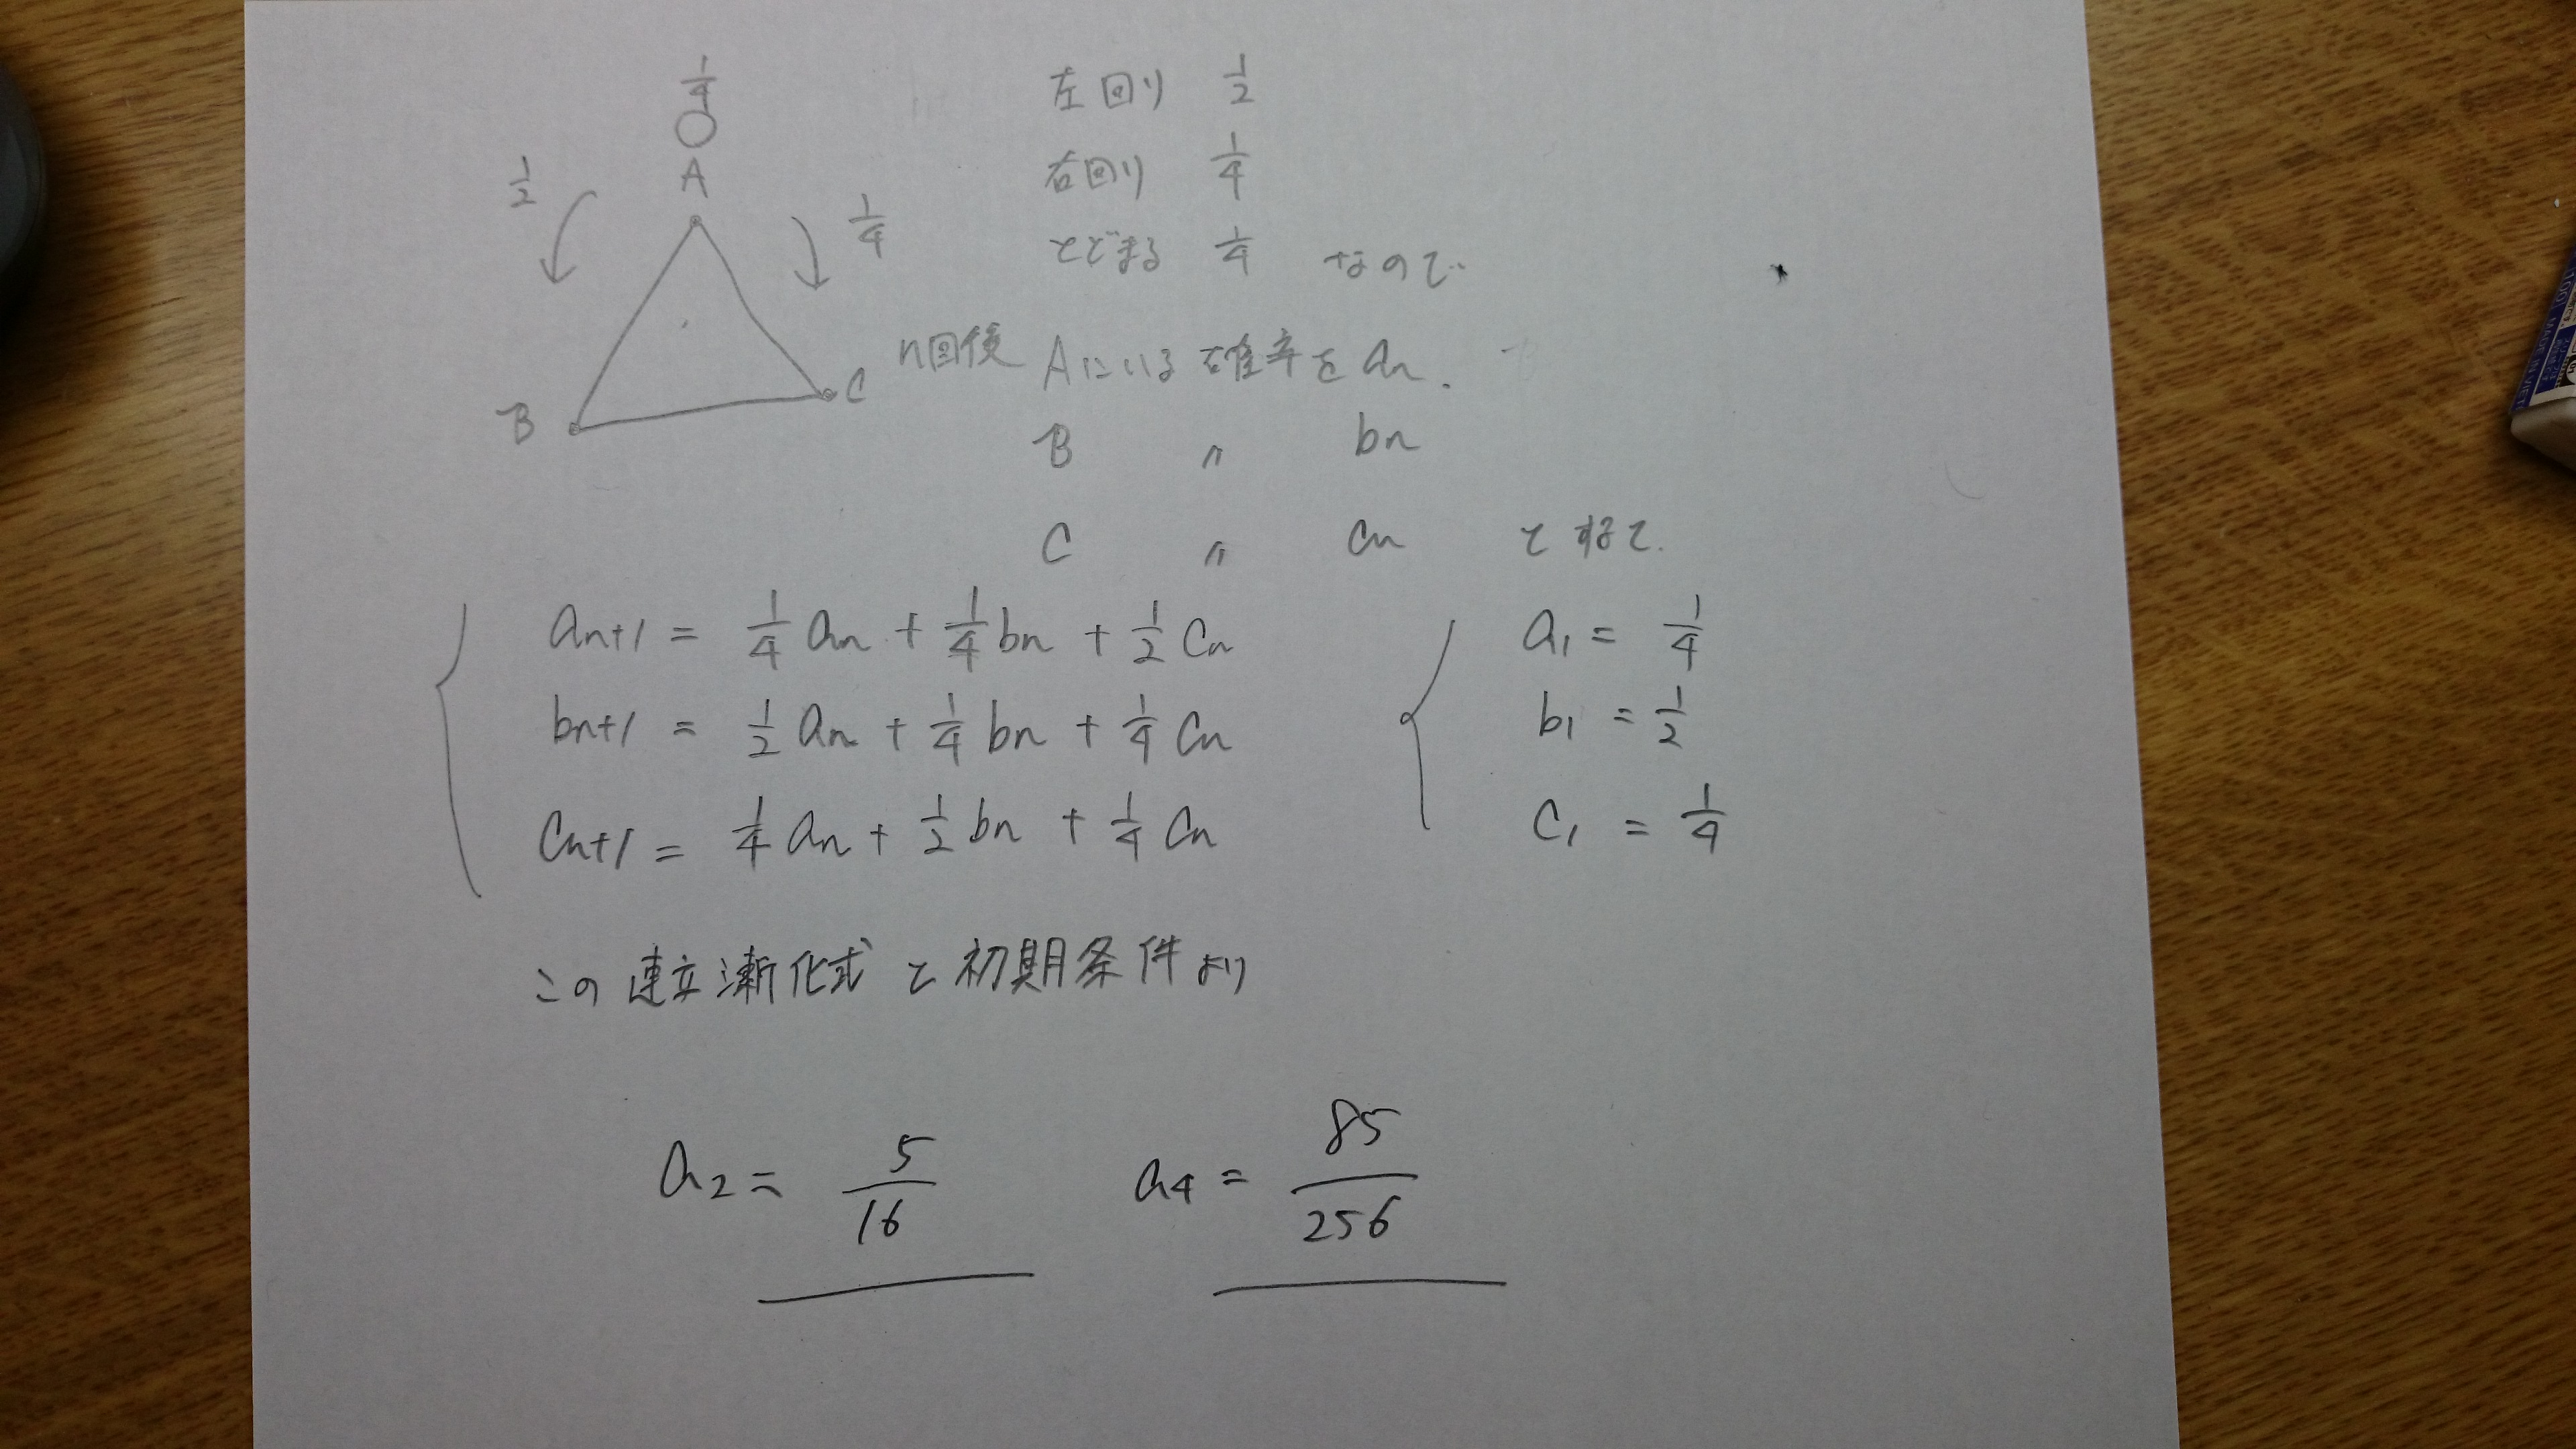 1/4
A
1/2
1/4
B
C
左回り 1/2
右回り 1/4
とどまる 1/4 なので
n回後 Aにいる確率を an.
B 〃 bn
C 〃 cn とすると.
an+1 = 1/4 an + 1/4 bn + 1/2 cn
bn+1 = 1/2 an + 1/4 bn + 1/4 cn
cn+1 = 1/4 an + 1/2 bn + 1/4 cn
a1 = 1/4
b1 = 1/2
c1 = 1/4
この連立漸化式と初期条件より
a2 = 5/16 a4 = 85/256